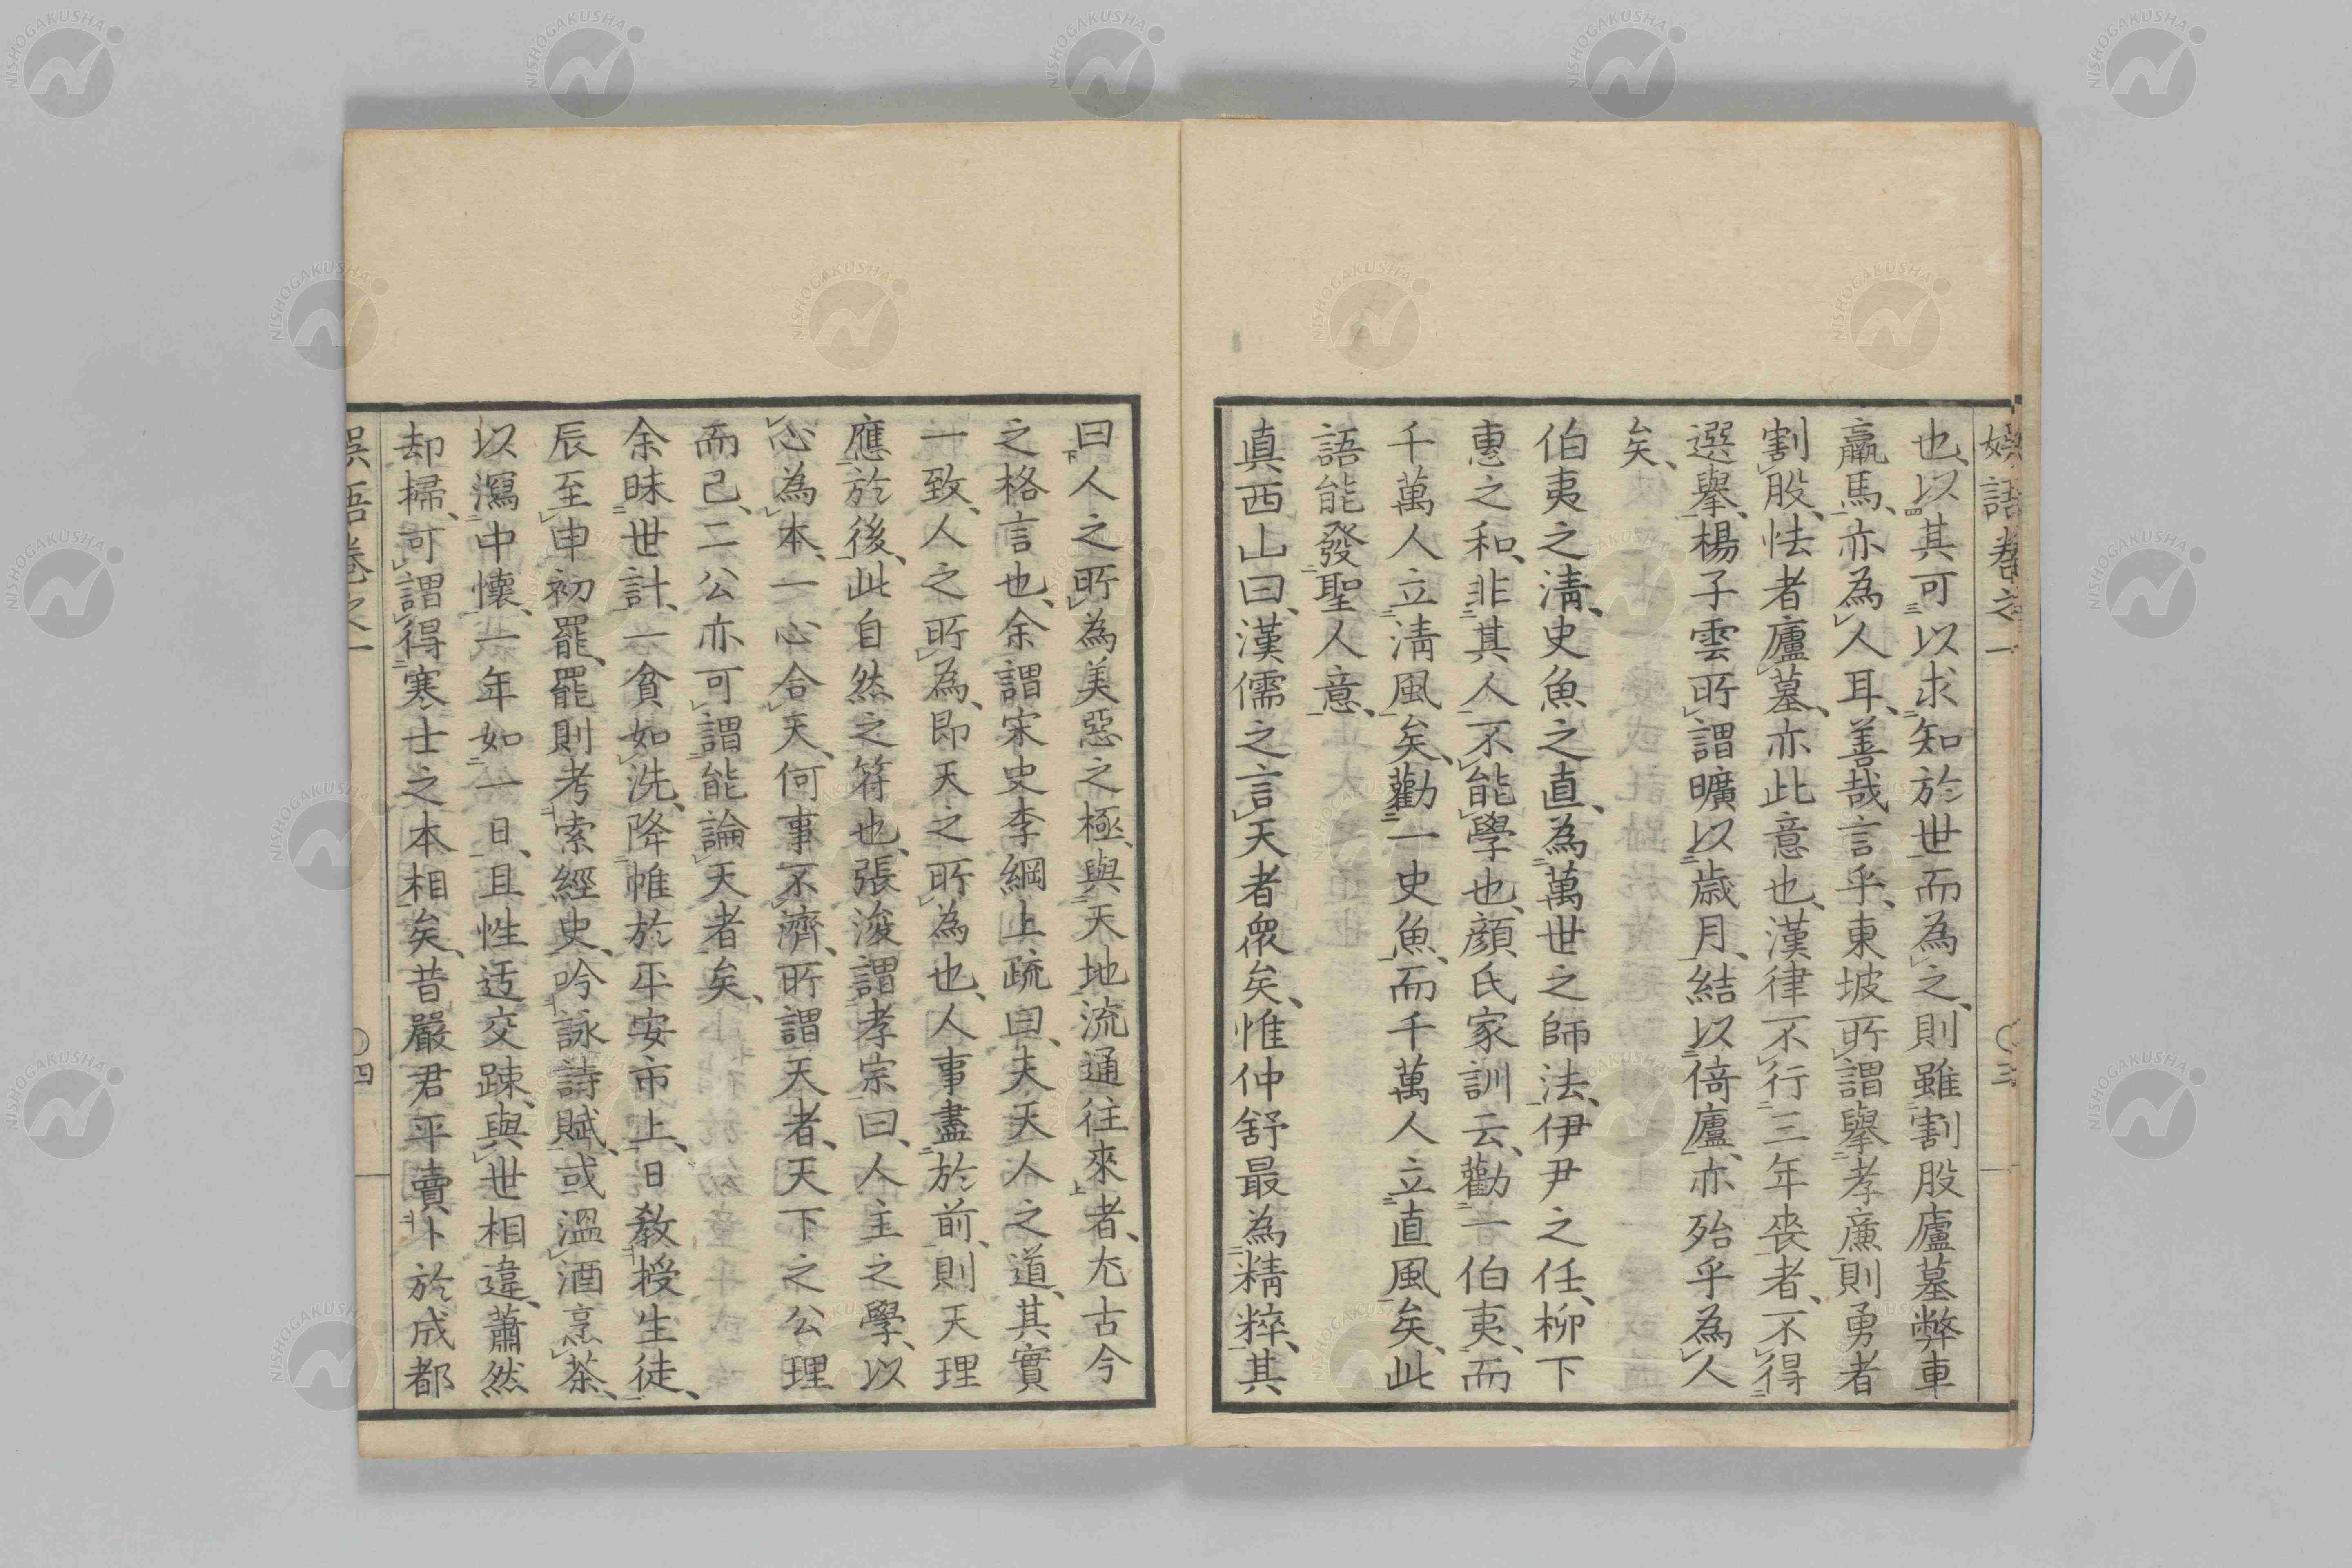 娯語卷之一 〇三
也、以其可以求知於世而為之、則雖割股廬墓弊車
羸馬、亦為人耳、善哉言乎、東坡所謂擧孝廉則勇者
割股、怯者廬墓、亦此意也、漢律不行三年喪者、不得
選擧、楊子雲所謂曠以歳月、結以倚廬、亦殆乎為人
矣、
伯夷之淸、史魚之直、為萬世之師法、伊尹之任、柳下
惠之和、非其人不能學也、顔氏家訓云、勸一伯夷、而
千萬人立淸風矣、勸一史魚、而千萬人立直風矣、此
語能發聖人意、
真西山曰、漢儒之言天者衆矣、惟仲舒最為精粹、其
曰人之所為美惡之極、與天地流通往來者、尤古今
之格言也、余謂宋史李綱上疏曰、夫天人之道、其實
一致、人之所為、即天之所為也、人事盡於前、則天理
應於後、此自然之符也、張浚謂孝宗曰、人主之學、以
心為本、一心合天、何事不濟、所謂天者、天下之公理
而已、二公亦可謂能論天者矣、
余昧世計、一貧如洗、降帷於平安市上、日教授生徒、
辰至申初罷、罷則考索經史、吟詠詩賦、或溫酒烹茶、
以瀉中懷、一年如一日、且性迂交踈、與世相違、蕭然
却掃、可謂得寒士之本相矣、昔嚴君平賣卜於成都
娯語卷之一 〇四
NISHOGAKUSHA